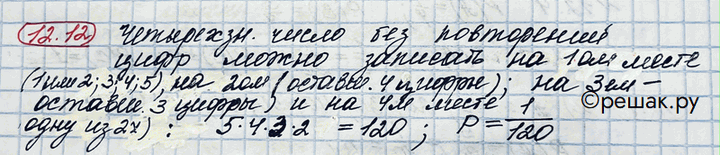 12.12 Четырехзн. число без повторений
цифр можно записать на 1ом месте
(1 или 2; 3; 4; 5), на 2ом (оставш. 4 цифры); на 3ем –
оставш. 3 цифры) и на 4м месте
одну из 2х) : 5·4·3·2 = 120 ; P = 1/120
©решак.ру